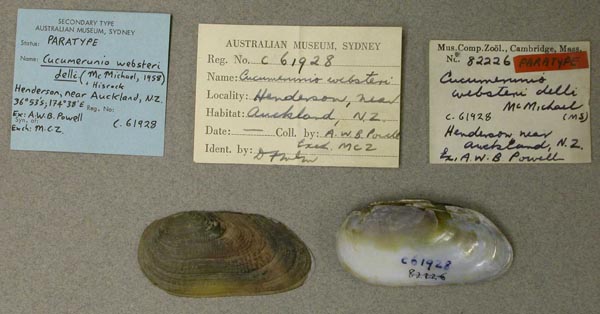 SECONDARY TYPE
AUSTRALIAN MUSEUM, SYDNEY
Status: PARATYPE
Name: Cucumerunio websteri
delli (McMichael, 1958)
& Hiscock
Henderson, near Auckland, N.Z.
36°53's, 174°38'E Reg. No:
Ex: A.W.B. Powell
Exch: M.C.Z. C. 61928
AUSTRALIAN MUSEUM, SYDNEY
Reg. No. C 61928
Name: Cucumerunio websteri
Locality: Henderson, near
Habitat: Auckland, N.Z.
Date: — Coll. by: A.W.B. Powell
Exch. MCZ
Ident. by:
Mus. Comp. Zoöl., Cambridge, Mass.
No. 82226 PARATYPE
Cucumerunio
websteri delli
McMichael
C. 61928 (MS)
Henderson, near
Auckland, N.Z.
Ex. A.W.B Powell
C61928
82226